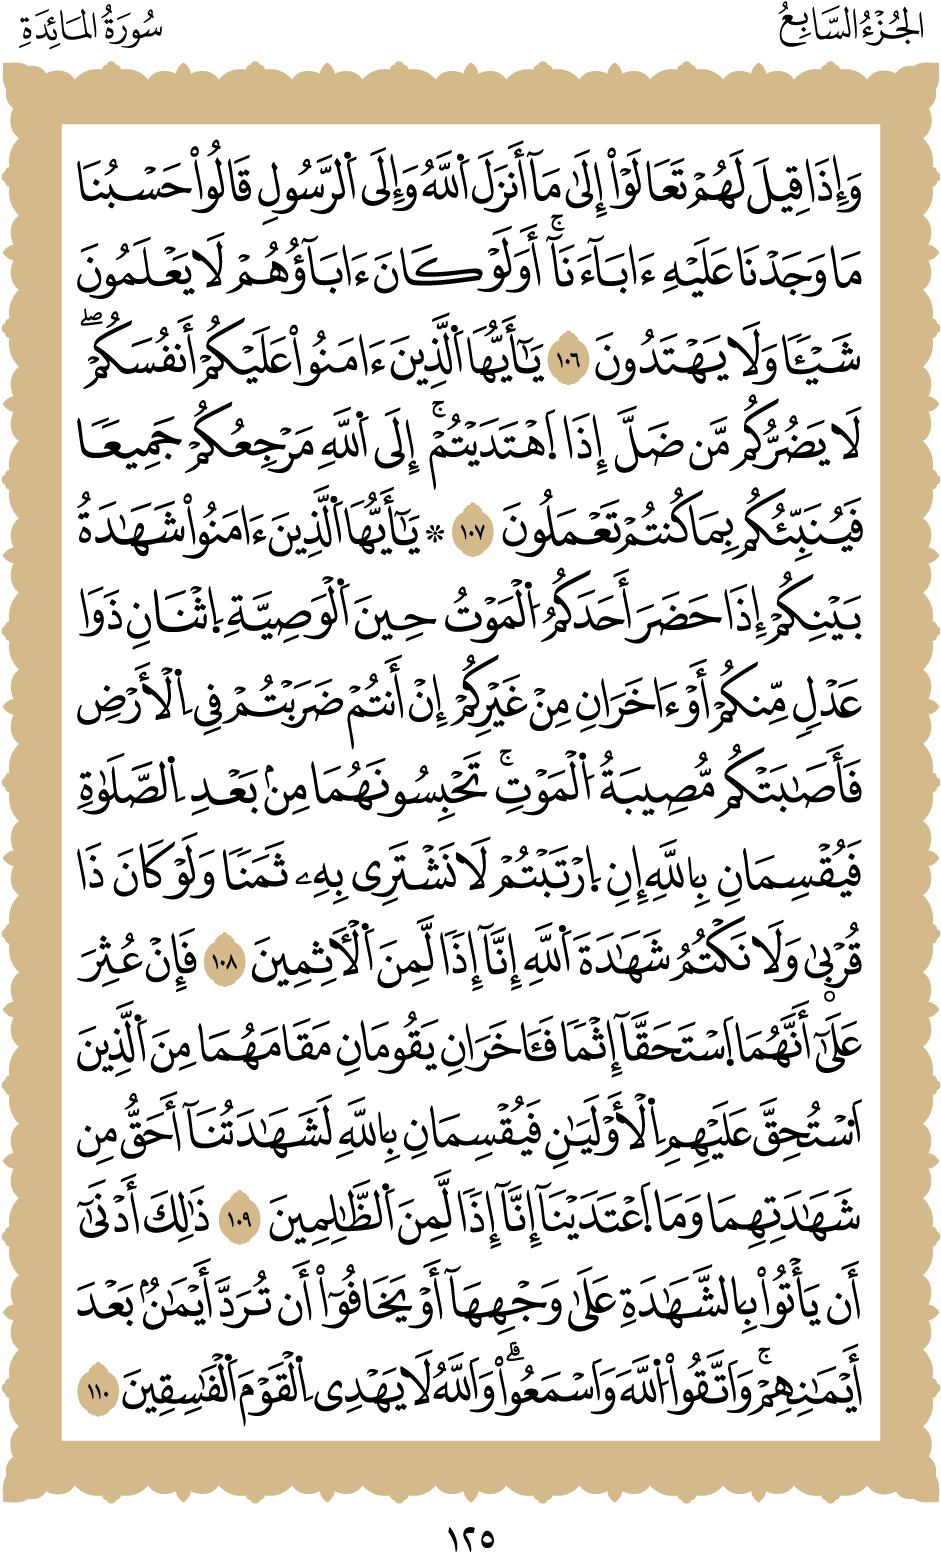 سُورَةُ المَائِدَةِ
الجُزْءُ السَّابِعُ
وَإِذَا قِيلَ لَهُمْ تَعَالَوْاْ إِلَىٰ مَآ أَنزَلَ اَ۬للَّهُ وَإِلَى اَ۬لرَّسُولِ قَالُواْ حَسْبُنَا
مَا وَجَدْنَا عَلَيْهِ ءَابَآءَنَآۚ أَوَلَوْ كَانَ ءَابَآؤُهُمْ لَا يَعْلَمُونَ
شَيْـٔٗا وَلَا يَهْتَدُونَ ١٠٦ يَـٰٓأَيُّهَا اَ۬لَّذِينَ ءَامَنُواْ عَلَيْكُمْ أَنفُسَكُمْۖ
لَا يَضُرُّكُم مَّن ضَلَّ إِذَا اَ۪هْتَدَيْتُمْۚ إِلَى اَ۬للَّهِ مَرْجِعُكُمْ جَمِيعٗا
فَيُنَبِّئُكُم بِمَا كُنتُمْ تَعْمَلُونَ ١٠٧ * يَـٰٓأَيُّهَا اَ۬لَّذِينَ ءَامَنُواْ شَهَـٰدَةُ
بَيْنِكُمْ إِذَا حَضَرَ أَحَدَكُمُ اُ۬لْمَوْتُ حِينَ اَ۬لْوَصِيَّةِ اِ۪ثْنَانِ ذَوَا
عَدْلٖ مِّنكُمْ أَوْ ءَاخَرَانِ مِنْ غَيْرِكُمْ إِنْ أَنتُمْ ضَرَبْتُمْ فِي اِ۬لْأَرْضِ
فَأَصَـٰبَتْكُم مُّصِيبَةُ اُ۬لْمَوْتِۚ تَحْبِسُونَهُمَا مِنۢ بَعْدِ اِ۬لصَّلَوٰةِ
فَيُقْسِمَانِ بِاللَّهِ إِنِ اِ۪رْتَبْتُمْ لَا نَشْتَرِي بِهِۦ ثَمَنٗا وَلَوْ كَانَ ذَا
قُرْبىٰ وَلَا نَكْتُمُ شَهَـٰدَةَ اَ۬للَّهِ إِنَّآ إِذٗا لَّمِنَ اَ۬لْأٓثِمِينَ ١٠٨ فَإِنْ عُثِرَ
عَلَىٰٓ أَنَّهُمَا اَ۪سْتَحَقَّآ إِثْمٗا فَـَٔاخَرَانِ يَقُومَانِ مَقَامَهُمَا مِنَ اَ۬لَّذِينَ
اَ۟سْتُحِقَّ عَلَيْهِمِ اِ۬لْأَوْلَيَـٰنِ فَيُقْسِمَانِ بِاللَّهِ لَشَهَـٰدَتُنَآ أَحَقُّ مِن
شَهَـٰدَتِهِمَا وَمَا اَ۪عْتَدَيْنَآ إِنَّآ إِذٗا لَّمِنَ اَ۬لظَّـٰلِمِينَ ١٠٩ ذَٰلِكَ أَدْنَىٰٓ
أَن يَأْتُواْ بِالشَّهَـٰدَةِ عَلَىٰ وَجْهِهَآ أَوْ يَخَافُوٓاْ أَن تُرَدَّ أَيْمَـٰنُۢ بَعْدَ
أَيْمَـٰنِهِمْۚ وَاَتَّقُواْ اُ۬للَّهَ وَاَسْمَعُواْۗ وَاَللَّهُ لَا يَهْدِي اِ۬لْقَوْمَ اَ۬لْفَـٰسِقِينَ ١١٠
١٢٥